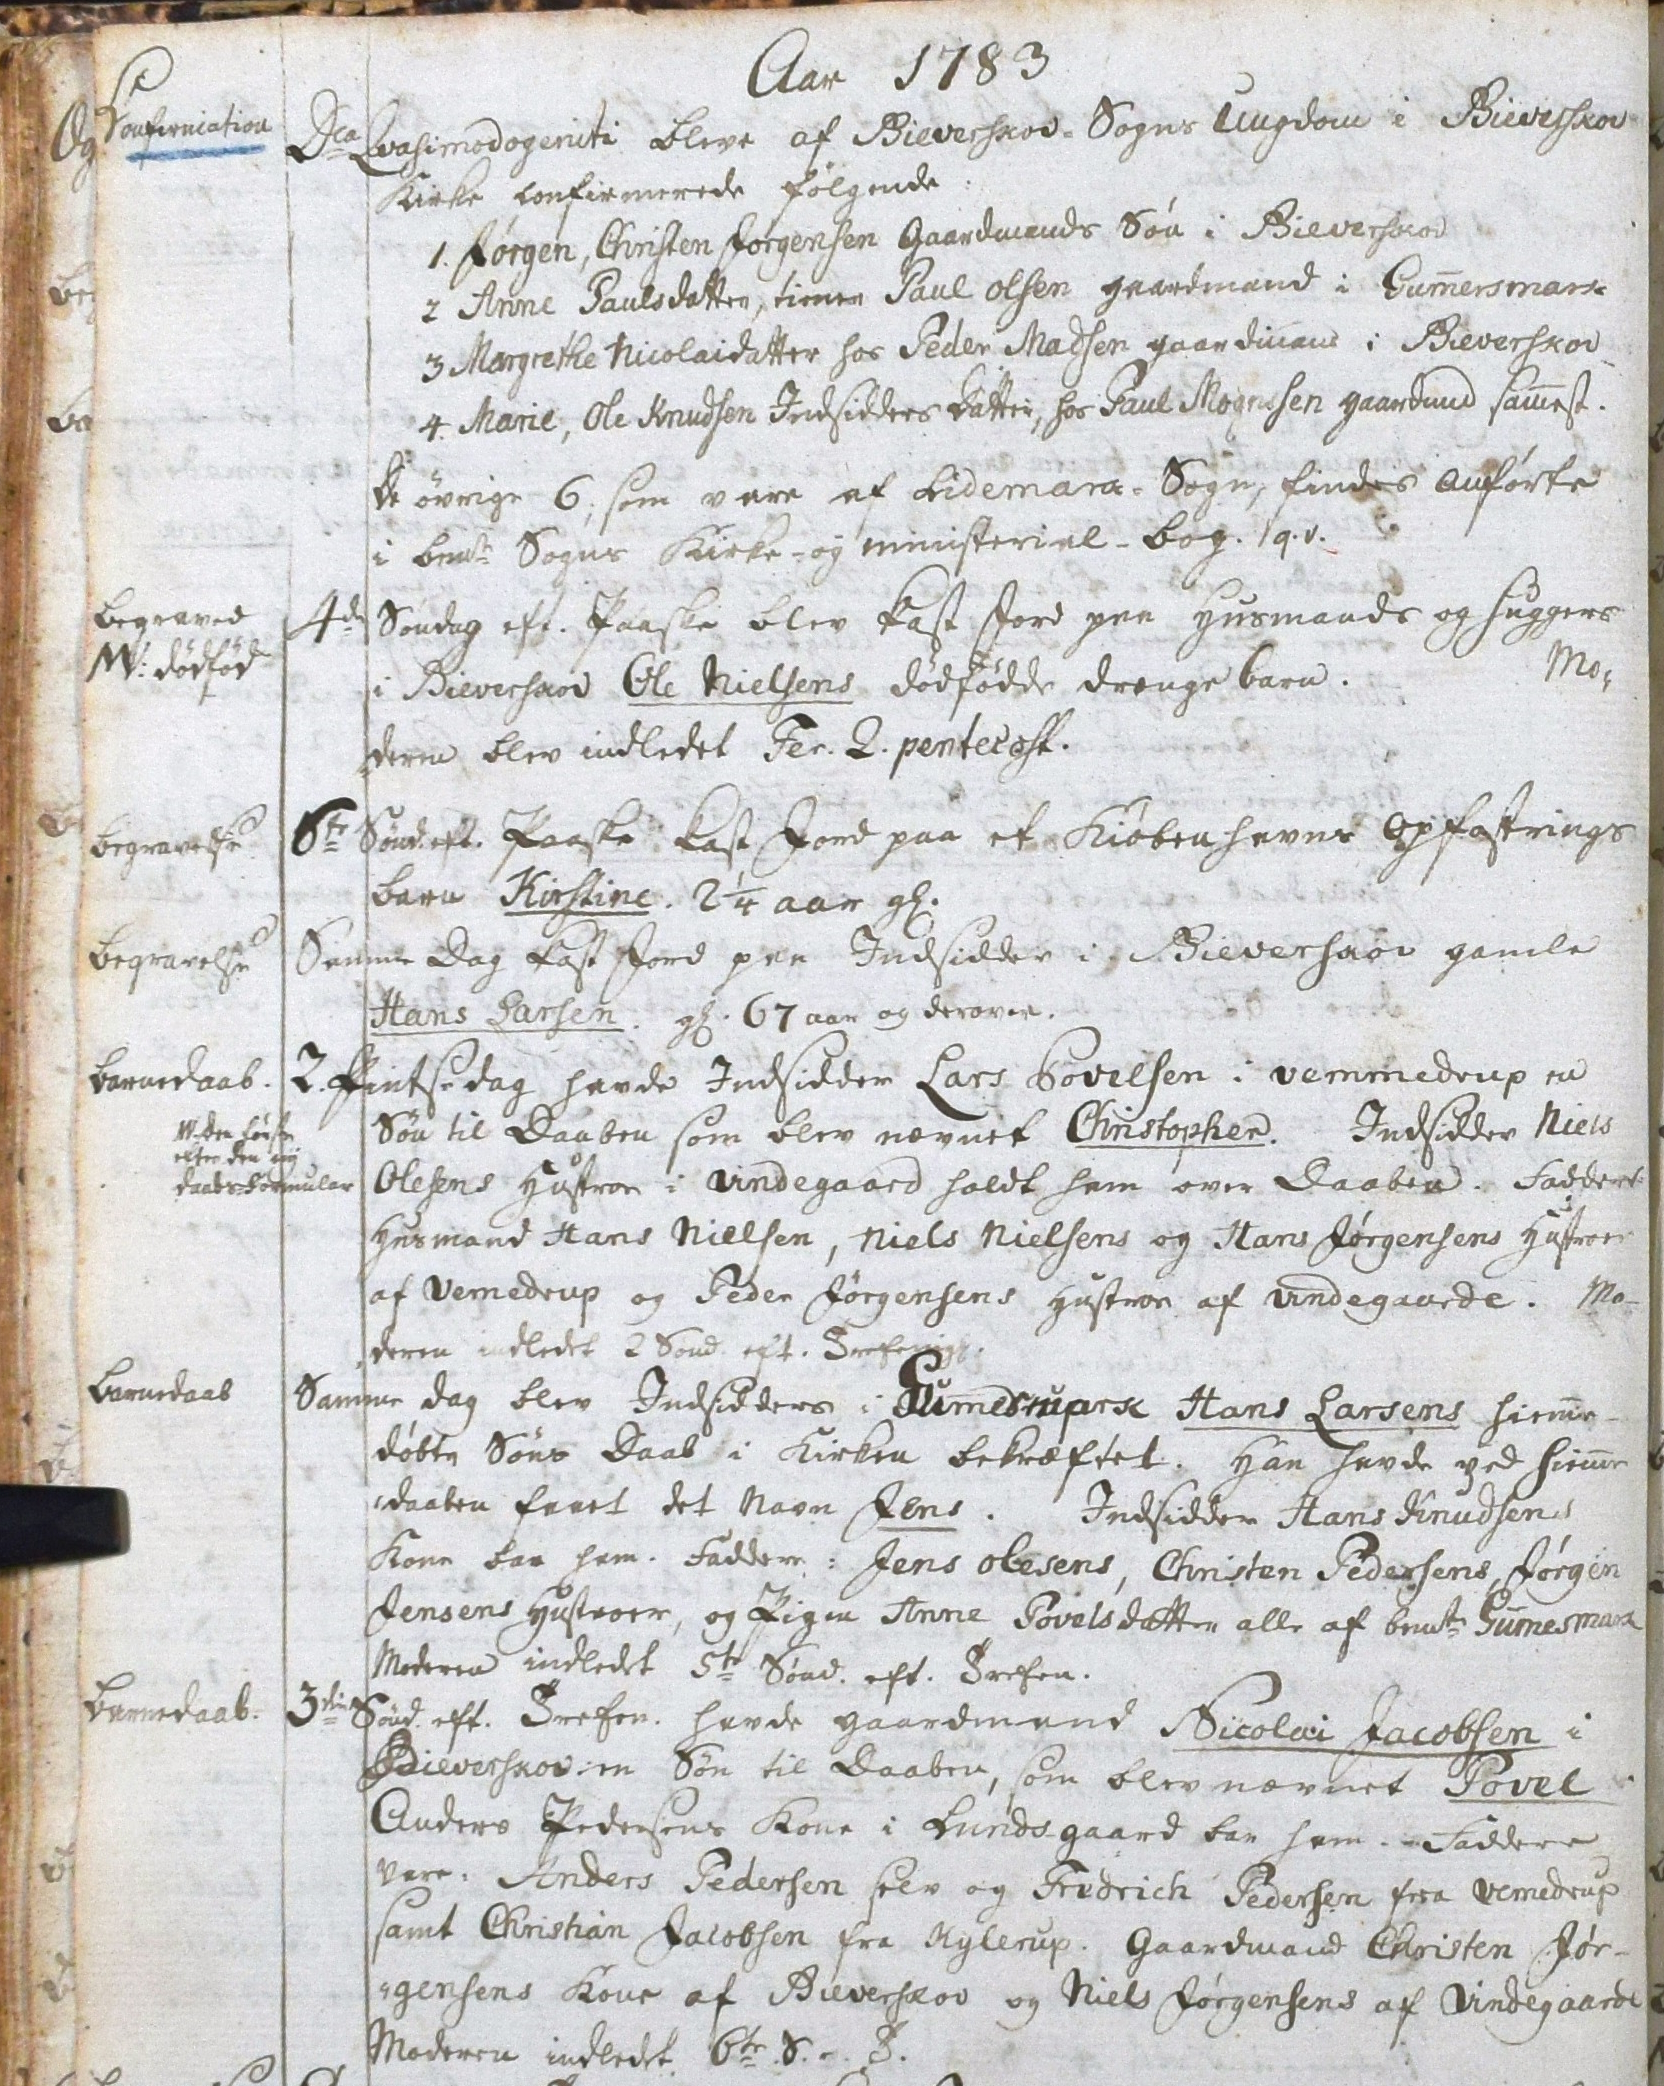 Aar 1783
Confirmation
Dca Qvasimodogeniti bleve af Bieverskov-Sogns Ungdom i Bieverskov
Kirke confirmerede følgende:
1. Jørgen, Christen Jørgensen Gaardmands Søn i Bieverskov
2 Anne Paulsdatter, tiener Paul Olsen gaardmand i Gum̅ersmark
3 Margrethe Nicolaidatter hos Peder Madsen gaardmand i Bieverskov
4. Marie, Ole Knudsen Indsidders datter, hos Paul Mognsen gaardmd sam̅est.
de øvrige 6, som vare af Lidemark-Sogn, findes anførte
i bemte Sogns Kirke- og ministerial-bog. q.v.
begraved
N: dødfød
4de Søndag eft. Paaske blev kast Jord paa Huusmands og Huggers
i Bieverskov Ole Nielsens dødfødde drenge barn. Mo-
deren blev indledet Fer. 2. pentecost.
begravelse
6te Sønd. eft. Paaske kast Jord paa et Kiøbenhavns Opfostrings
barn Kirstine. 2¼ aar gl.
begravelse
Samme Dag kast Jord paa Indsidder i Bieverskov gamle
Hans Larsen. gl. 67 aar og derover.
barnedaab.
2. Pintsedag havde Indsidder Lars Povelsen i vemmedrup en
efter den ny
daabs-Formular
Søn til Daaben som blev nævnet Christopher. Indsidder Niels
Olesens Hustroe i vindegaard holdt ham over Daaben. Faddere
Huusmand Hans Nielsen, Niels Nielsens og Hans Jørgensens Hustroer
af Vemedrup og Peder Jørgensens Hustroe af vindegaarde. Mo-
deren indledet 2 Sønd. eft. Trefoldigh.
barnedaab
Samme dag blev Indsidders i Hans Larsens hiem̅e-
døbte Søns Daab i Kirken bekræftet. Han havde ved hiem̅e
daaben faaet det Navn Jens. Indsidder Hans Knudsens
Kone bar ham. Faddere: Jens Olesens, Christen Pedersens, Jørgen
Jensens Hustroer, og Pigen Anne Povelsdatter alle af bemte Gum̅esmark
Moderen indledet 5te Sønd. eft. Trefon.
barnedaab.
3die Sønd. eft. Trefon. havde gaardmand Nicolai Jacobsen i
Bieverskov en Søn til Daaben, som blev nævnet Povel
Anders Pedersens Kone i Lundsgaard bar ham. Faddere
vare: Anders Pedersen selv og Fridrich Pedersen fra vemedrup
samt Christian Jacobsen fra Kylerup. Gaardmand Christen Jør-
gensens Kone af Bieverskov og Niels Jørgensens af Vindegaarde
Moderen indledet 6te S. - T.